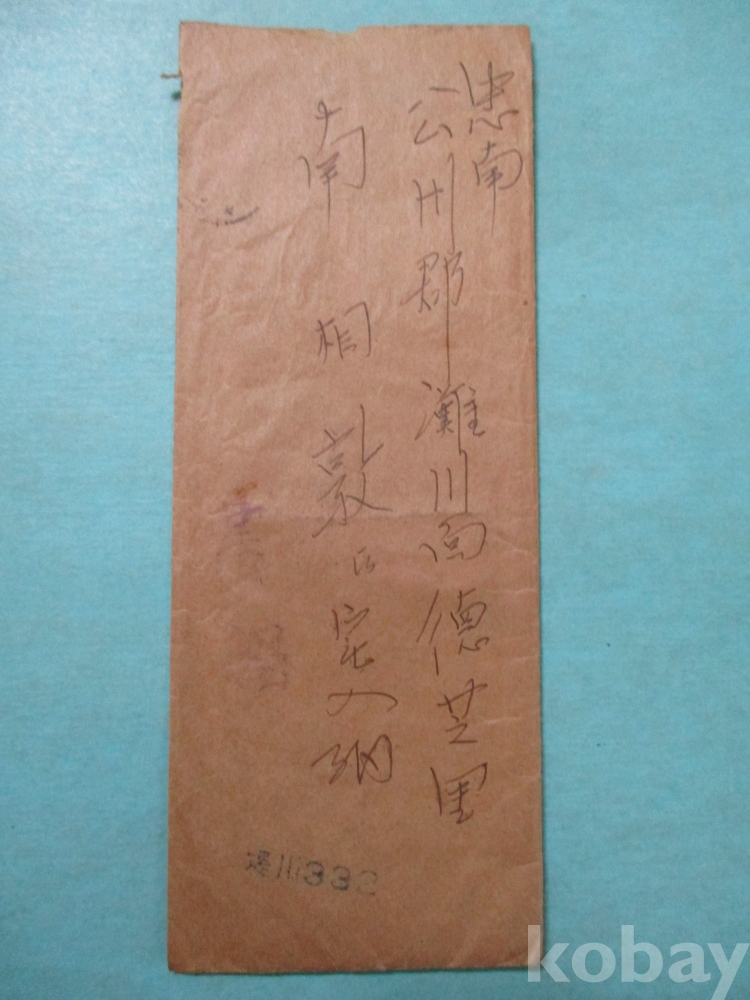 忠南
公州郡 灘川面 德芝里
南相敦氏宅入納
川332
kobay